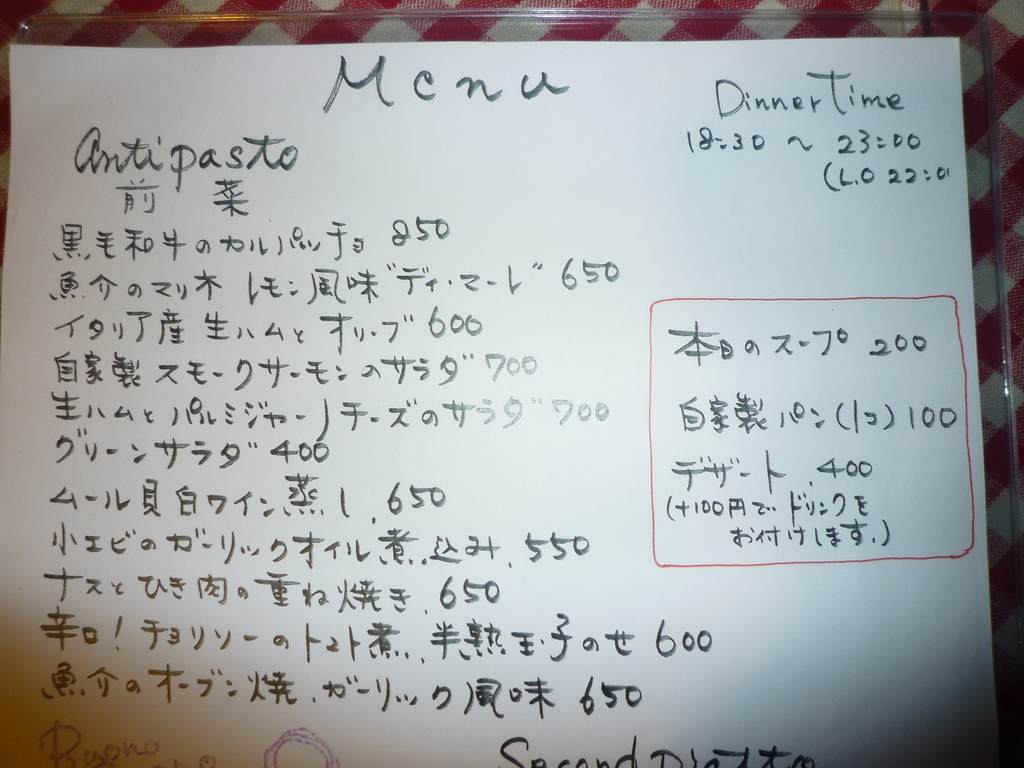 Menu
Dinner Time
18:30 ～ 23:00
(L.O 22:0
Antipasto
前菜
黒毛和牛のカルパッチョ 850
魚介のマリネ レモン風味 "ディ・マーレ" 650
イタリア産 生ハムと オリーブ 600
自家製 スモークサーモンのサラダ 700
生ハムと パルミジャーノチーズのサラダ 700
グリーンサラダ 400
ムール貝 白ワイン蒸し. 650
小エビのガーリックオイル煮込み. 550
ナスとひき肉の重ね焼き. 650
辛口! チョリソーのトマト煮. 半熟玉子のせ 600
魚介のオーブン焼. ガーリック風味 650
本日のスープ 200
自家製 パン (1コ) 100
デザート. 400
(+100円で ドリンクを
お付けします.)
Buono
Second Piatto